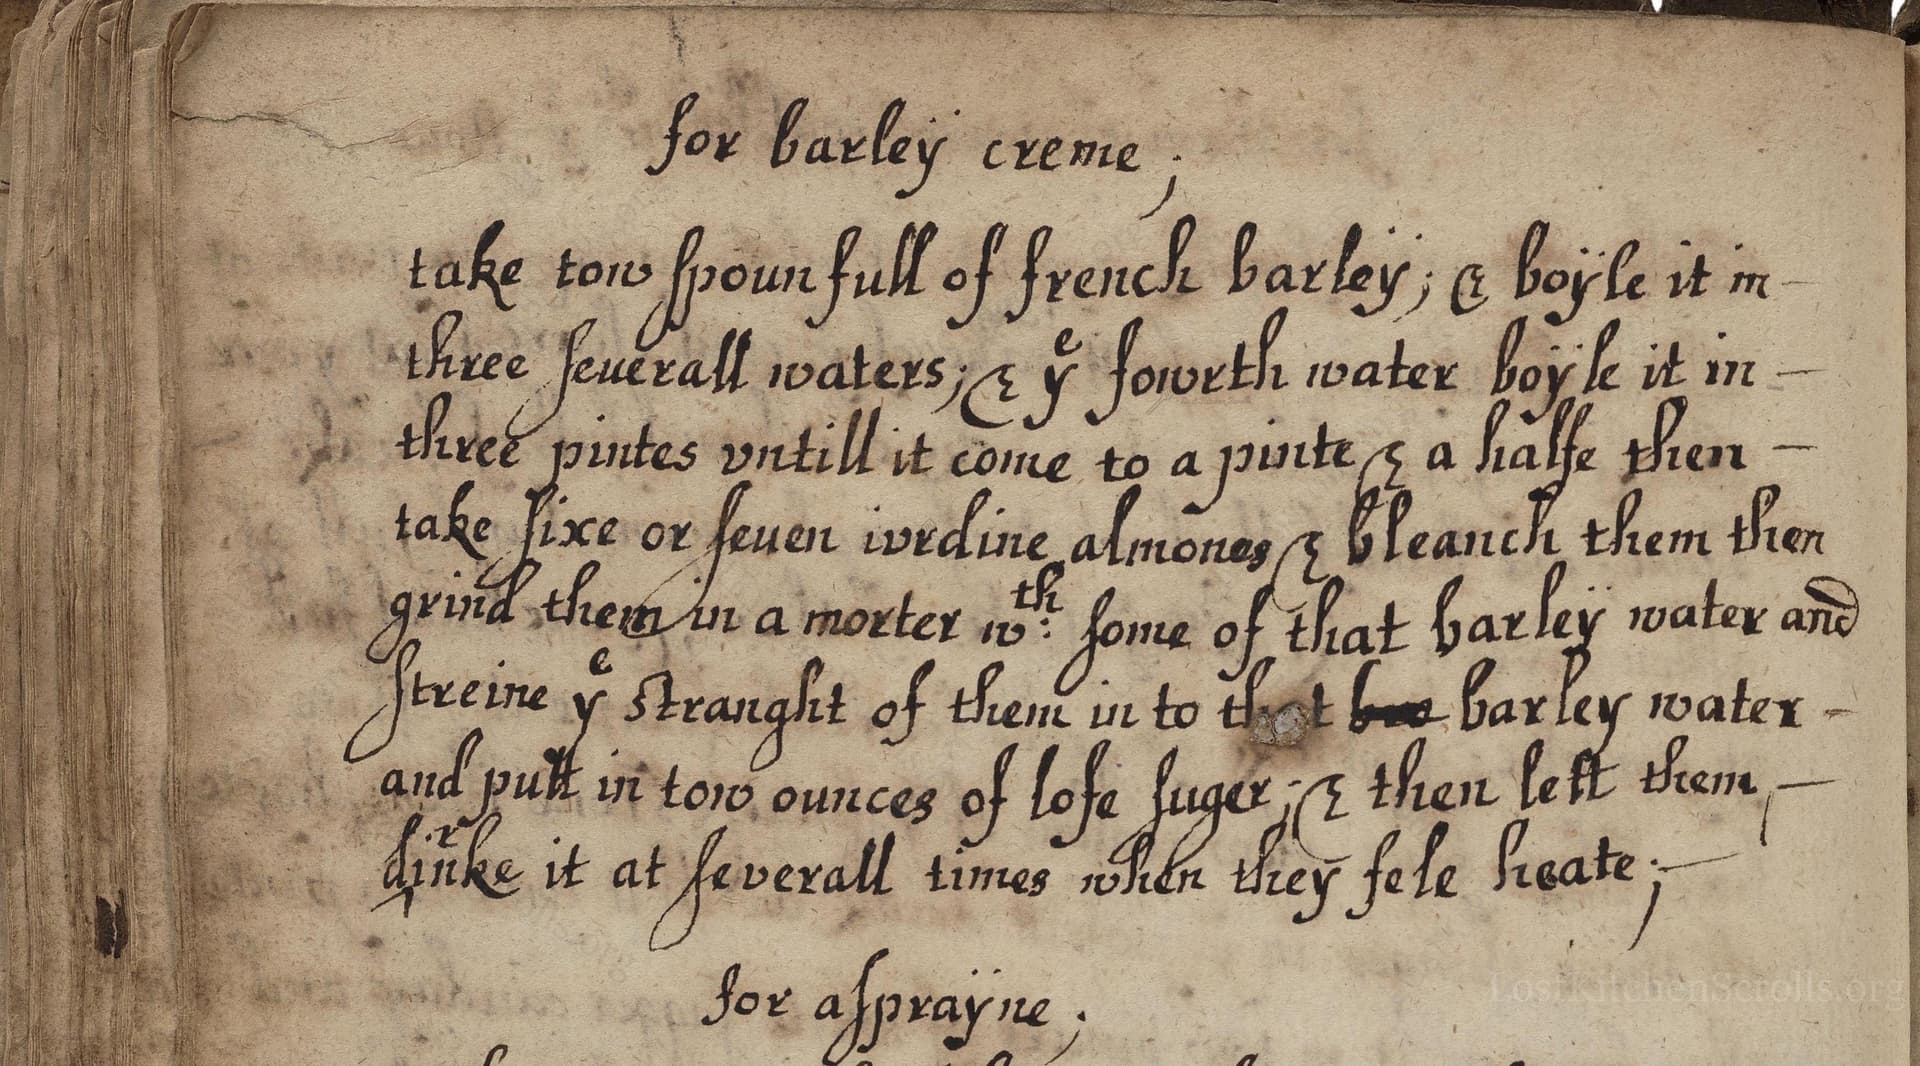 for barleÿ creme;
take tow ſpounfull of french barleÿ; & boÿle it in –
three ſeuerall waters; & yᵉ fowrth water boÿle it in –
three pintes vntill it come to a pinte & a halfe then –
take ſixe or ſeuen iordine almones & bleanch them then
grind them in a morter wᵗʰ: ſome of that barleÿ water and
ſtreine yᵉ straught of them in to that barley water –
and putt in tow ounces of lofe ſuger; & then lett them, –
drinke it at ſeverall times when they fele heate; –
for aſpraÿne;
LostKitchenScrolls.org